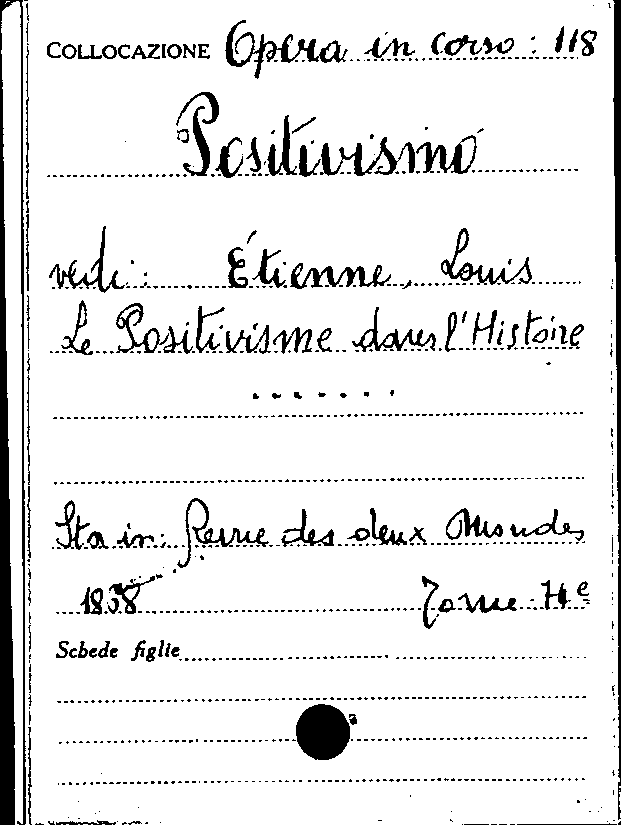 COLLOCAZIONE Opera in corso: 118
Positivismo
vedi: Étienne, Louis
Le Positivisme dans l'Histoire
.......
Sta in: Revue des deux Mondes
Tome
Schede figlie